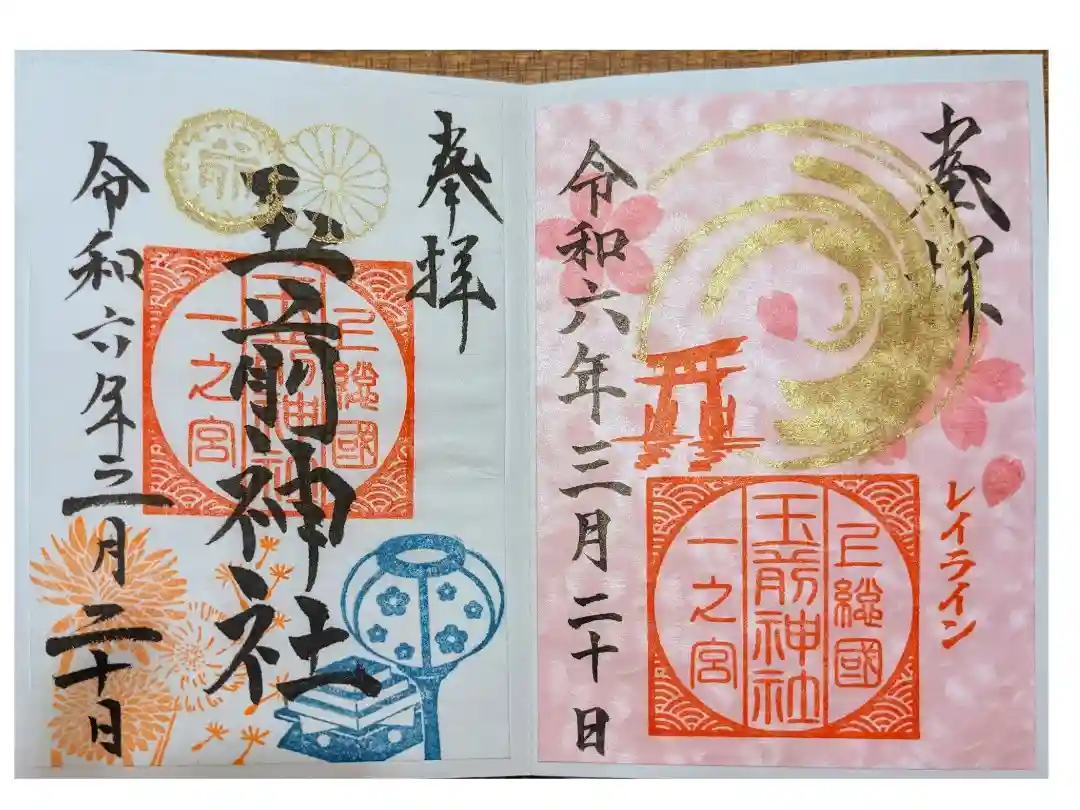 奉拝
レイライン
上総國
玉前神社
一之宮
令和六年三月二十日
奉拝
玉前神社
上総國
玉前神社
一之宮
令和六年三月二十日